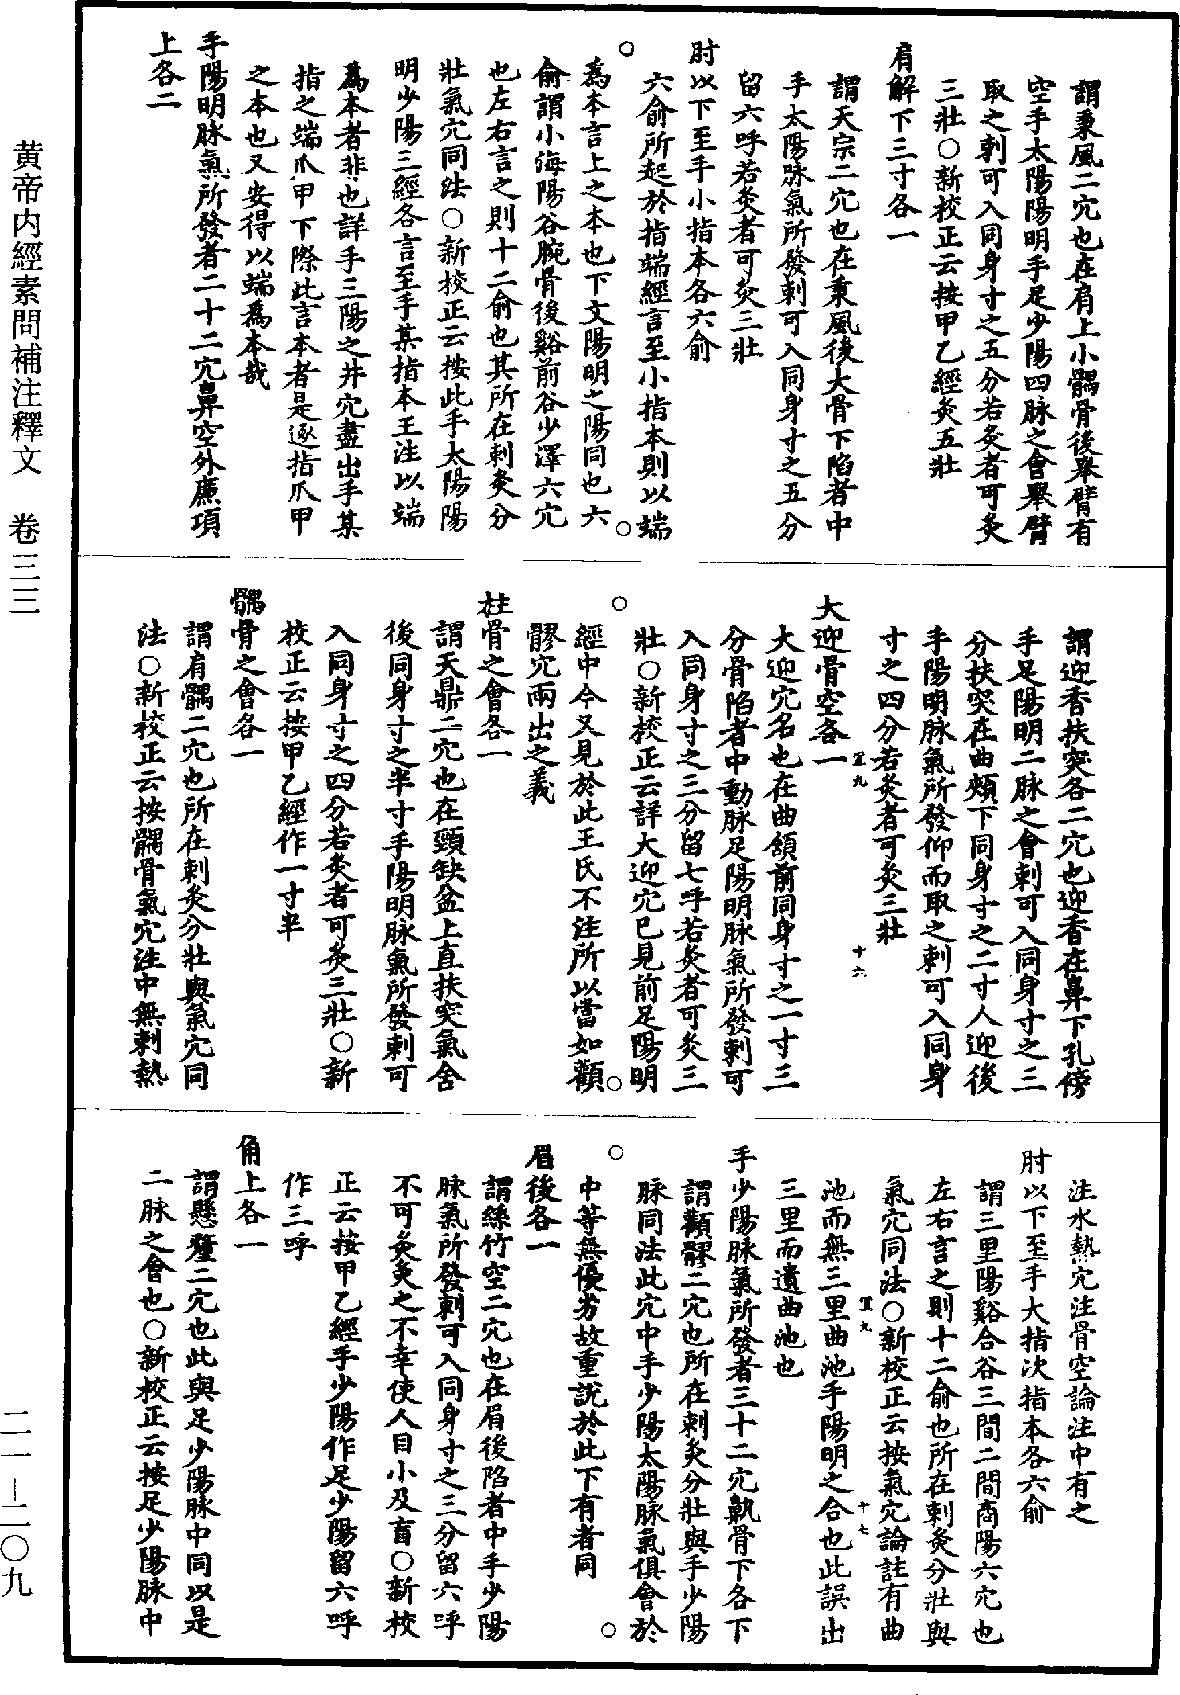 黄帝内經素問補注釋文　卷三三
二一－二〇九
謂秉風二穴也在肩上小髃骨後舉臂有
空手太陽陽明手足少陽四脉之會舉臂
取之刺可入同身寸之五分若灸者可灸
三壯○新校正云按甲乙經灸五壯
肩解下三寸各一
謂天宗二穴也在秉風後大骨下陷者中
手太陽脉氣所發刺可入同身寸之五分
留六呼若灸者可灸三壯
肘以下至手小指本各六俞
六俞所起於指端經言至小指本則以端
○
○
為本言上之本也下文陽明之陽同也六
俞謂小海陽谷腕骨後谿前谷少澤六穴
也左右言之則十二俞也其所在刺灸分
壯氣穴同法○新校正云按此手太陽陽
明少陽三經各言至手某指本王注以端
為本者非也詳手三陽之井穴盡出手某
指之端爪甲下際此言本者是逐指爪甲
之本也又安得以端為本哉
手陽明脉氣所發者二十二穴鼻空外廉項
上各二
謂迎香扶突各二穴也迎香在鼻下孔傍
手足陽明二脉之會刺可入同身寸之三
分扶突在曲頰下同身寸之二寸人迎後
手陽明脉氣所發仰而取之刺可入同身
寸之四分若灸者可灸三壯
罝九
十六
大迎骨空各一
大迎穴名也在曲頷前同身寸之一寸三
分骨陷者中動脉足陽明脉氣所發刺可
入同身寸之三分留七呼若灸者可灸三
壯○新校正云詳大迎穴已見前足陽明
○
○
經中今又見於此王氏不注所以當如顴
髎穴兩出之義
柱骨之會各一
謂天鼎二穴也在頸缺盆上直扶突氣舍
後同身寸之半寸手陽明脉氣所發刺可
入同身寸之四分若灸者可灸三壯○新
校正云按甲乙經作一寸半
髃骨之會各一
謂肩髃二穴也所在刺灸分壯與氣穴同
法○新校正云按髃骨氣穴注中無刺熱
注水熱穴注骨空論注中有之
肘以下至手大指次指本各六俞
謂三里陽谿合谷三間二間商陽六穴也
左右言之則十二俞也所在刺灸分壯與
氣穴同法○新校正云按氣穴論註有曲
罝九
十七
池而無三里曲池手陽明之合也此誤出
三里而遺曲池也
手少陽脉氣所發者三十二穴鼽骨下各下
謂顴髎二穴也所在刺灸分壯與手少陽
脉同法此穴中手少陽太陽脉氣俱會於
○
○
中等無優劣故重說於此下有者同
眉後各一
謂絲竹空二穴也在眉後陷者中手少陽
脉氣所發刺可入同身寸之三分留六呼
不可灸灸之不幸使人目小及盲○新校
正云按甲乙經手少陽作足少陽留六呼
作三呼
角上各一
謂懸釐二穴也此與足少陽脉中同以是
二脉之會也○新校正云按足少陽脉中